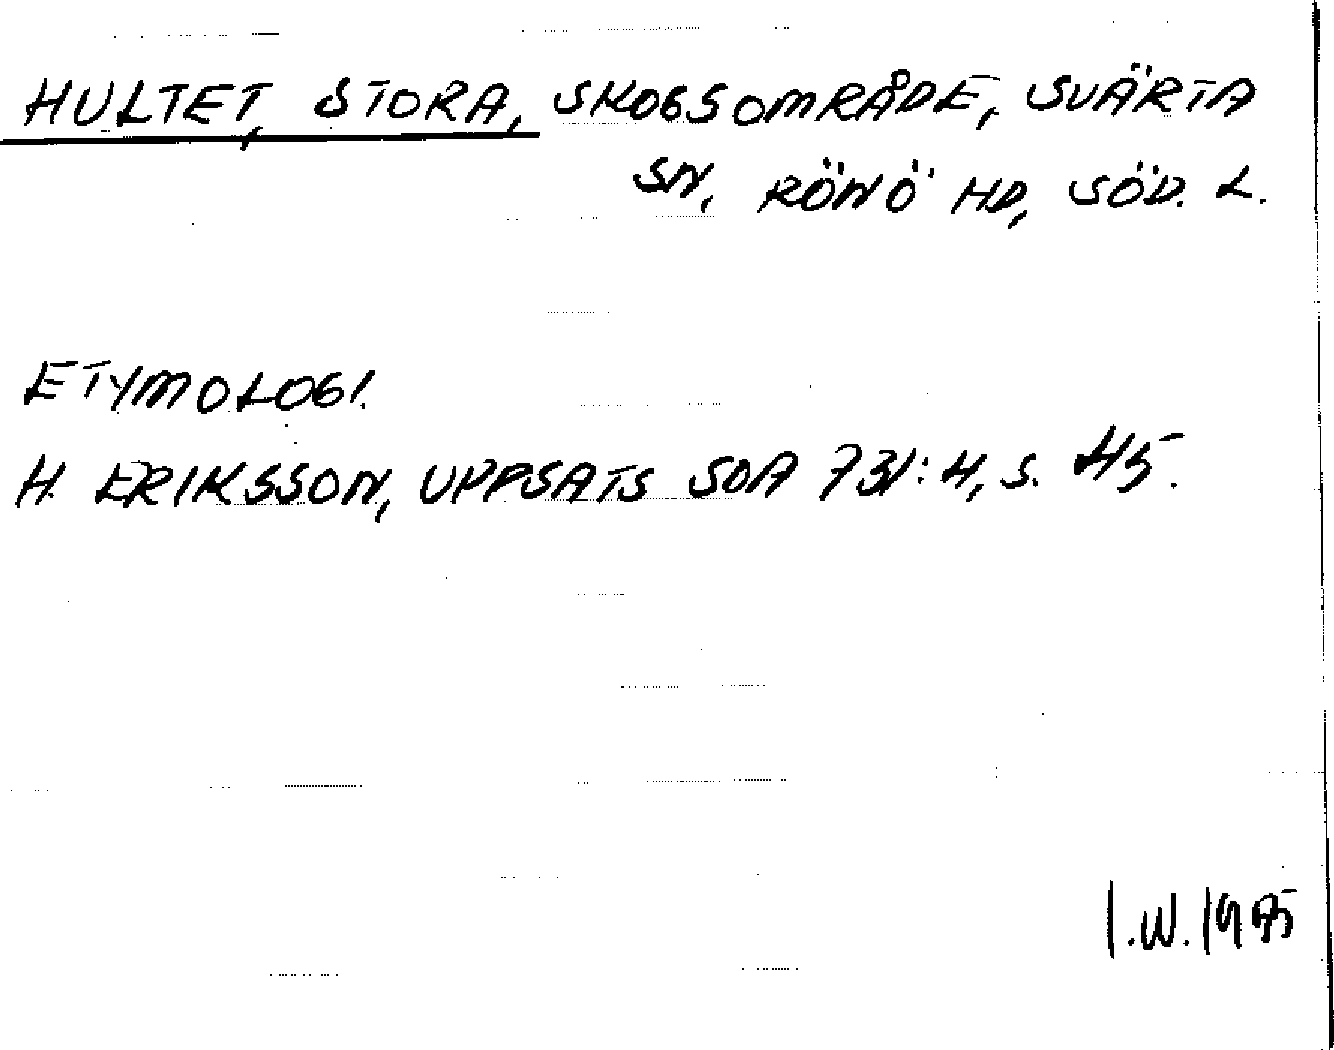 HULTET, STORA, SKOGSOMRÅDE, SVÄRTA
SN, RÖNÖ HD, SÖD. L.
ETYMOLOGI.
H. ERIKSSON, UPPSATS SOA 731:4, S. 45.
I.W. 1975